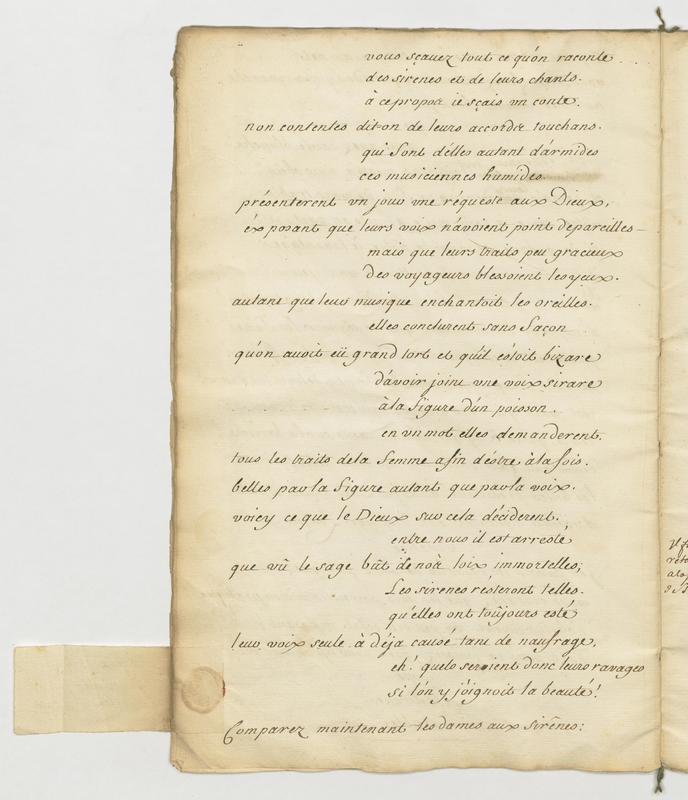 vous sçavez tout ce qu'on raconte
des sirenes et de leurs chants.
à ce propos ie sçais vn conte.
non contentes dit-on de leurs accords touchans.
qui sont d'élles autant d'ármides
ces musiciennes humides
présenterent vn jour vne réqueste aux Dieux,
éxposant que leurs voix n'avoient point de pareilles
mais que leurs traits peu gracieux
des voyageurs blessoient les yeux.
autant que leur musique enchantoit les oreilles.
elles conclurent sans façon
qu'on auoit eü grand tort et qu'il éstoit bizare
d'avoir joint vne voix si rare
à la figure d'un poisson.
en vn mot elles demanderent.
tous les traits de la femme afin d'éstre à la fois.
belles par la figure autant que par la voix.
voicy ce que le Dieux sur cela déciderent.
entre nous il est arresté
que vû le sage büt de nos loix immortelles;
Les sirenes résteront telles.
qu'elles ont toüjours esté
leur voix seule à déja causé tant de naufrage,
eh! quels seroient donc leurs ravages
si l'ón y joignoit la beauté!
Comparez maintenant les dames aux sirênes: